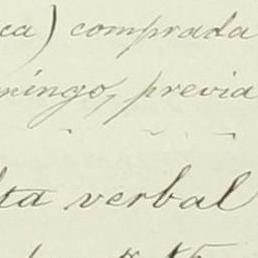 ca) comprada
ringo, previa
ta verbal